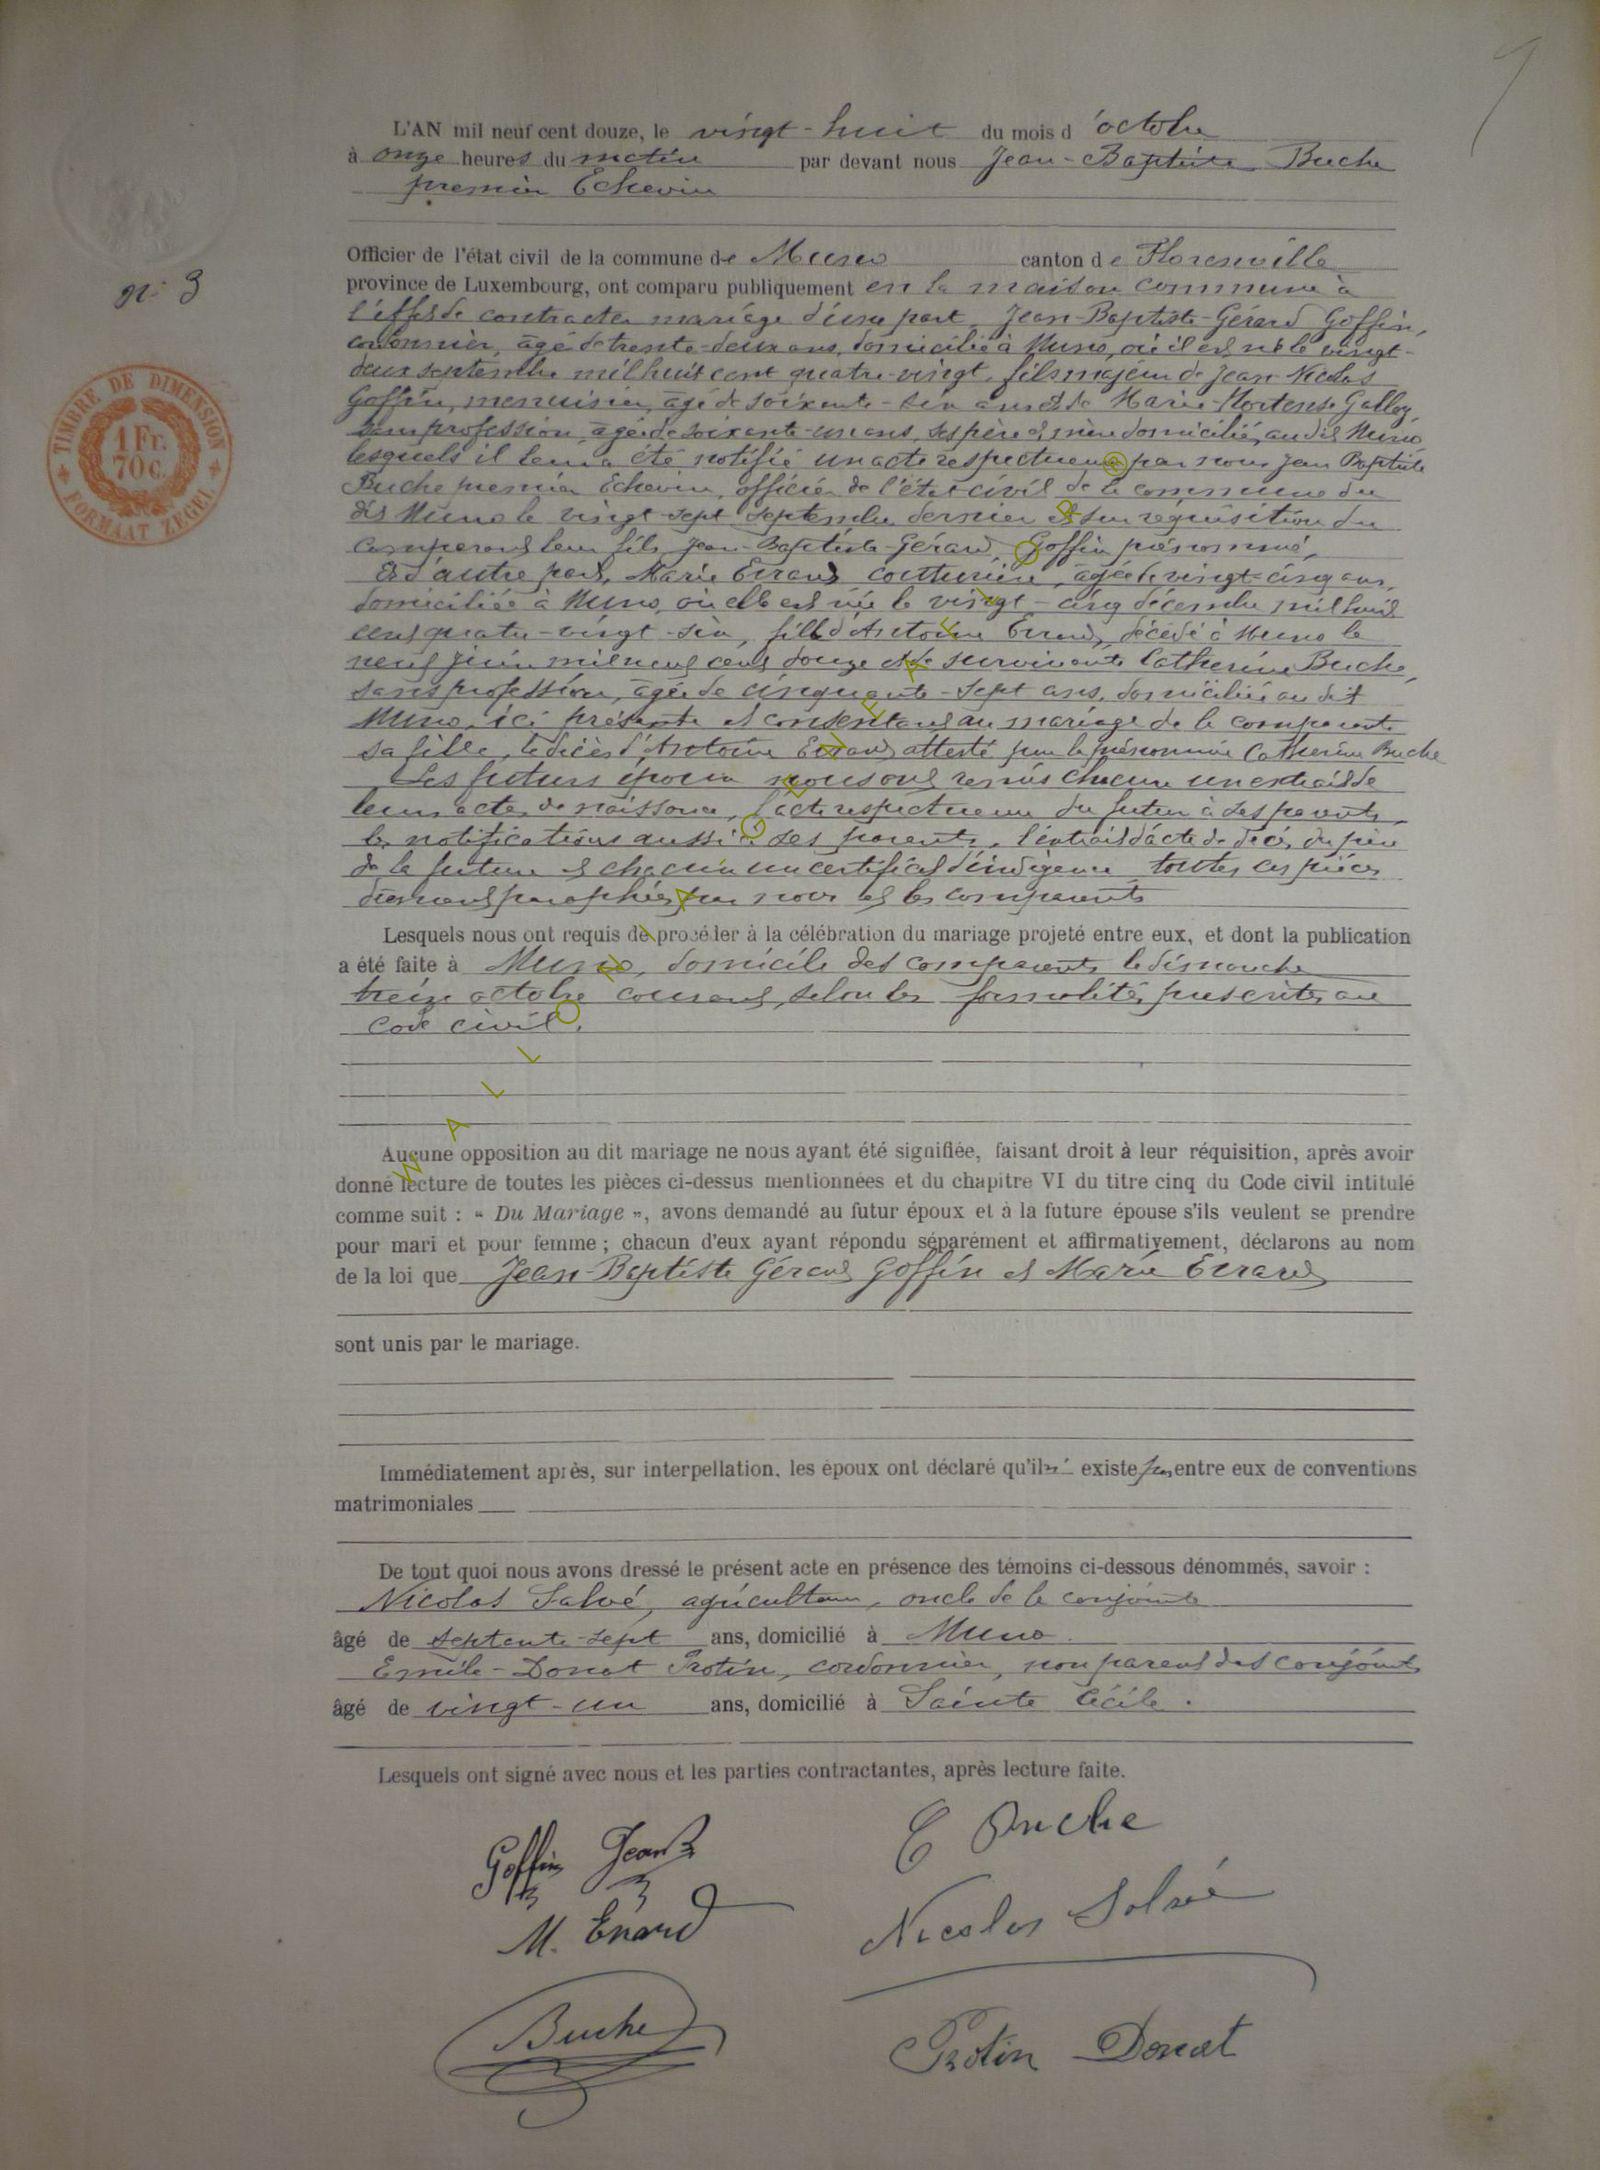 L'AN mil neuf cent douze, le vingt-huit du mois d'octobre
à onze heures du matin par devant nous Jean-Baptiste Buche
premier Echevin
Officier de l'état civil de la commune de Muno canton de Florenville
n° 3
province de Luxembourg, ont comparu publiquement en la maison commune à
l'effet de contracter mariage d'une part, Jean-Baptiste-Gérard Goffin,
cordonnier, âgé de trente-deux ans, domicilié à Muno, où il est né le vingt-
TIMBRE DE DIMENSION
1 Fr.
70 c.
FORMAAT ZEGEL
deux septembre mil huit cent quatre-vingt, fils majeur de Jean Nicolas
Goffin, menuisier, âgé de soixante-six ans et de Marie-Hortense Galloy,
sans profession, âgée de soixante-un ans, ses père et mère domiciliés au dit Muno
lesquels il leur a été notifié un acte respectueux par nous Jean Baptiste
Buche premier Echevin, officier de l'état civil de la commune du
dit Muno le vingt-sept septembre dernier et sur réquisition du
comparant leur fils Jean-Baptiste-Gérard Goffin prénommé,
Et d'autre part, Marie Errard couturière, âgée de vingt-cinq ans,
domiciliée à Muno, où elle est née le vingt-cinq décembre mil huit
cent quatre-vingt-six, fille d'Antoine Errard, décédé à Muno le
neuf juin mil neuf cent douze et de survivante Catherine Buche,
sans profession, âgée de cinquante-sept ans, domiciliée au dit
Muno, ici présente et consentant au mariage de la comparante
sa fille, le décès d'Antoine Errard attesté par la prénommée Catherine Buche
Les futurs époux nous ont remis chacun un extrait de
leur acte de naissance, l'acte respectueux du futur à ses parents,
les notifications aussi à ses parents, l'extrait d'acte de décès du père
de la future et chacun un certificat d'indigence toutes ces pièces
dûment paraphées par nous et les comparants
Lesquels nous ont requis de procéder à la célébration du mariage projeté entre eux, et dont la publication
a été faite à Muno, domicile des comparants le dimanche
treize octobre courant, selon les formalités prescrites au
code civil.
WALLONIA GENEALOGY ©
Aucune opposition au dit mariage ne nous ayant été signifiée, faisant droit à leur réquisition, après avoir
donné lecture de toutes les pièces ci-dessus mentionnées et du chapitre VI du titre cinq du Code civil intitulé
comme suit : « Du Mariage », avons demandé au futur époux et à la future épouse s'ils veulent se prendre
pour mari et pour femme ; chacun d'eux ayant répondu séparément et affirmativement, déclarons au nom
de la loi que Jean-Baptiste Gérard Goffin et Marie Errard
sont unis par le mariage.
Immédiatement après, sur interpellation, les époux ont déclaré qu'il n' existe pas entre eux de conventions
matrimoniales
De tout quoi nous avons dressé le présent acte en présence des témoins ci-dessous dénommés, savoir :
Nicolas Salvé, agriculteur, oncle de la conjointe
âgé de septante-sept ans, domicilié à Muno
Emile-Donat Protin, cordonnier, non parent des conjoints
âgé de vingt-un ans, domicilié à Sainte Cécile.
Lesquels ont signé avec nous et les parties contractantes, après lecture faite.
Goffin Jean B
C Buche
M. Errard
Nicolas Salvé
Buche
Protin Donat